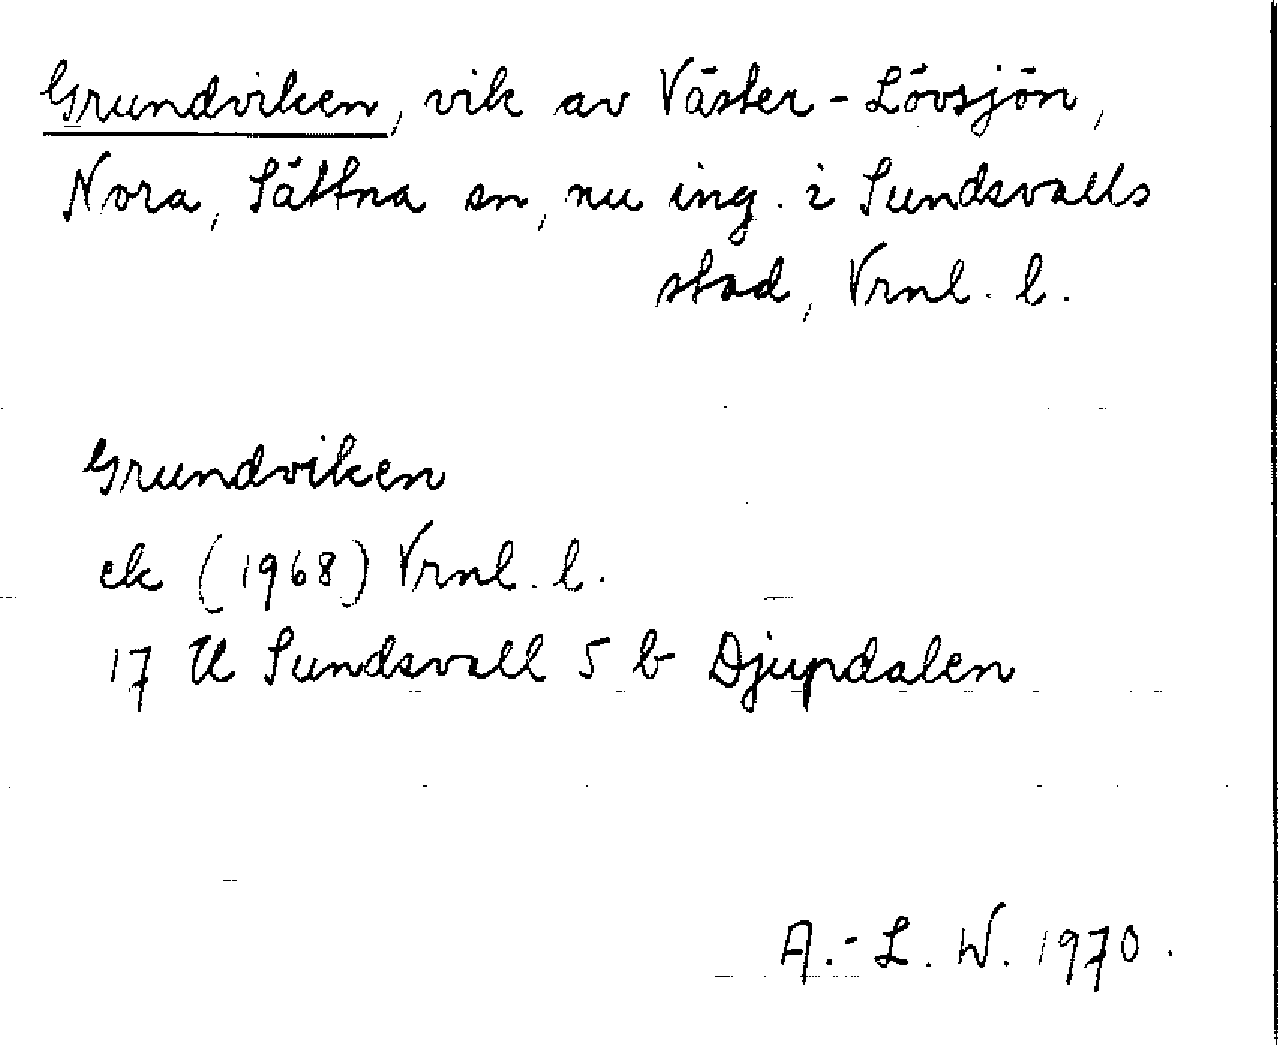 Grundviken, vik av Väster-Lövsjön,
Nora, Sättna sn, nu ing. i Sundsvalls
stad, Vrnl. l.
Grundviken
ek (1968) Vrnl. l.
17 H Sundsvall 5 b Djupdalen
A.-L. W. 1970.